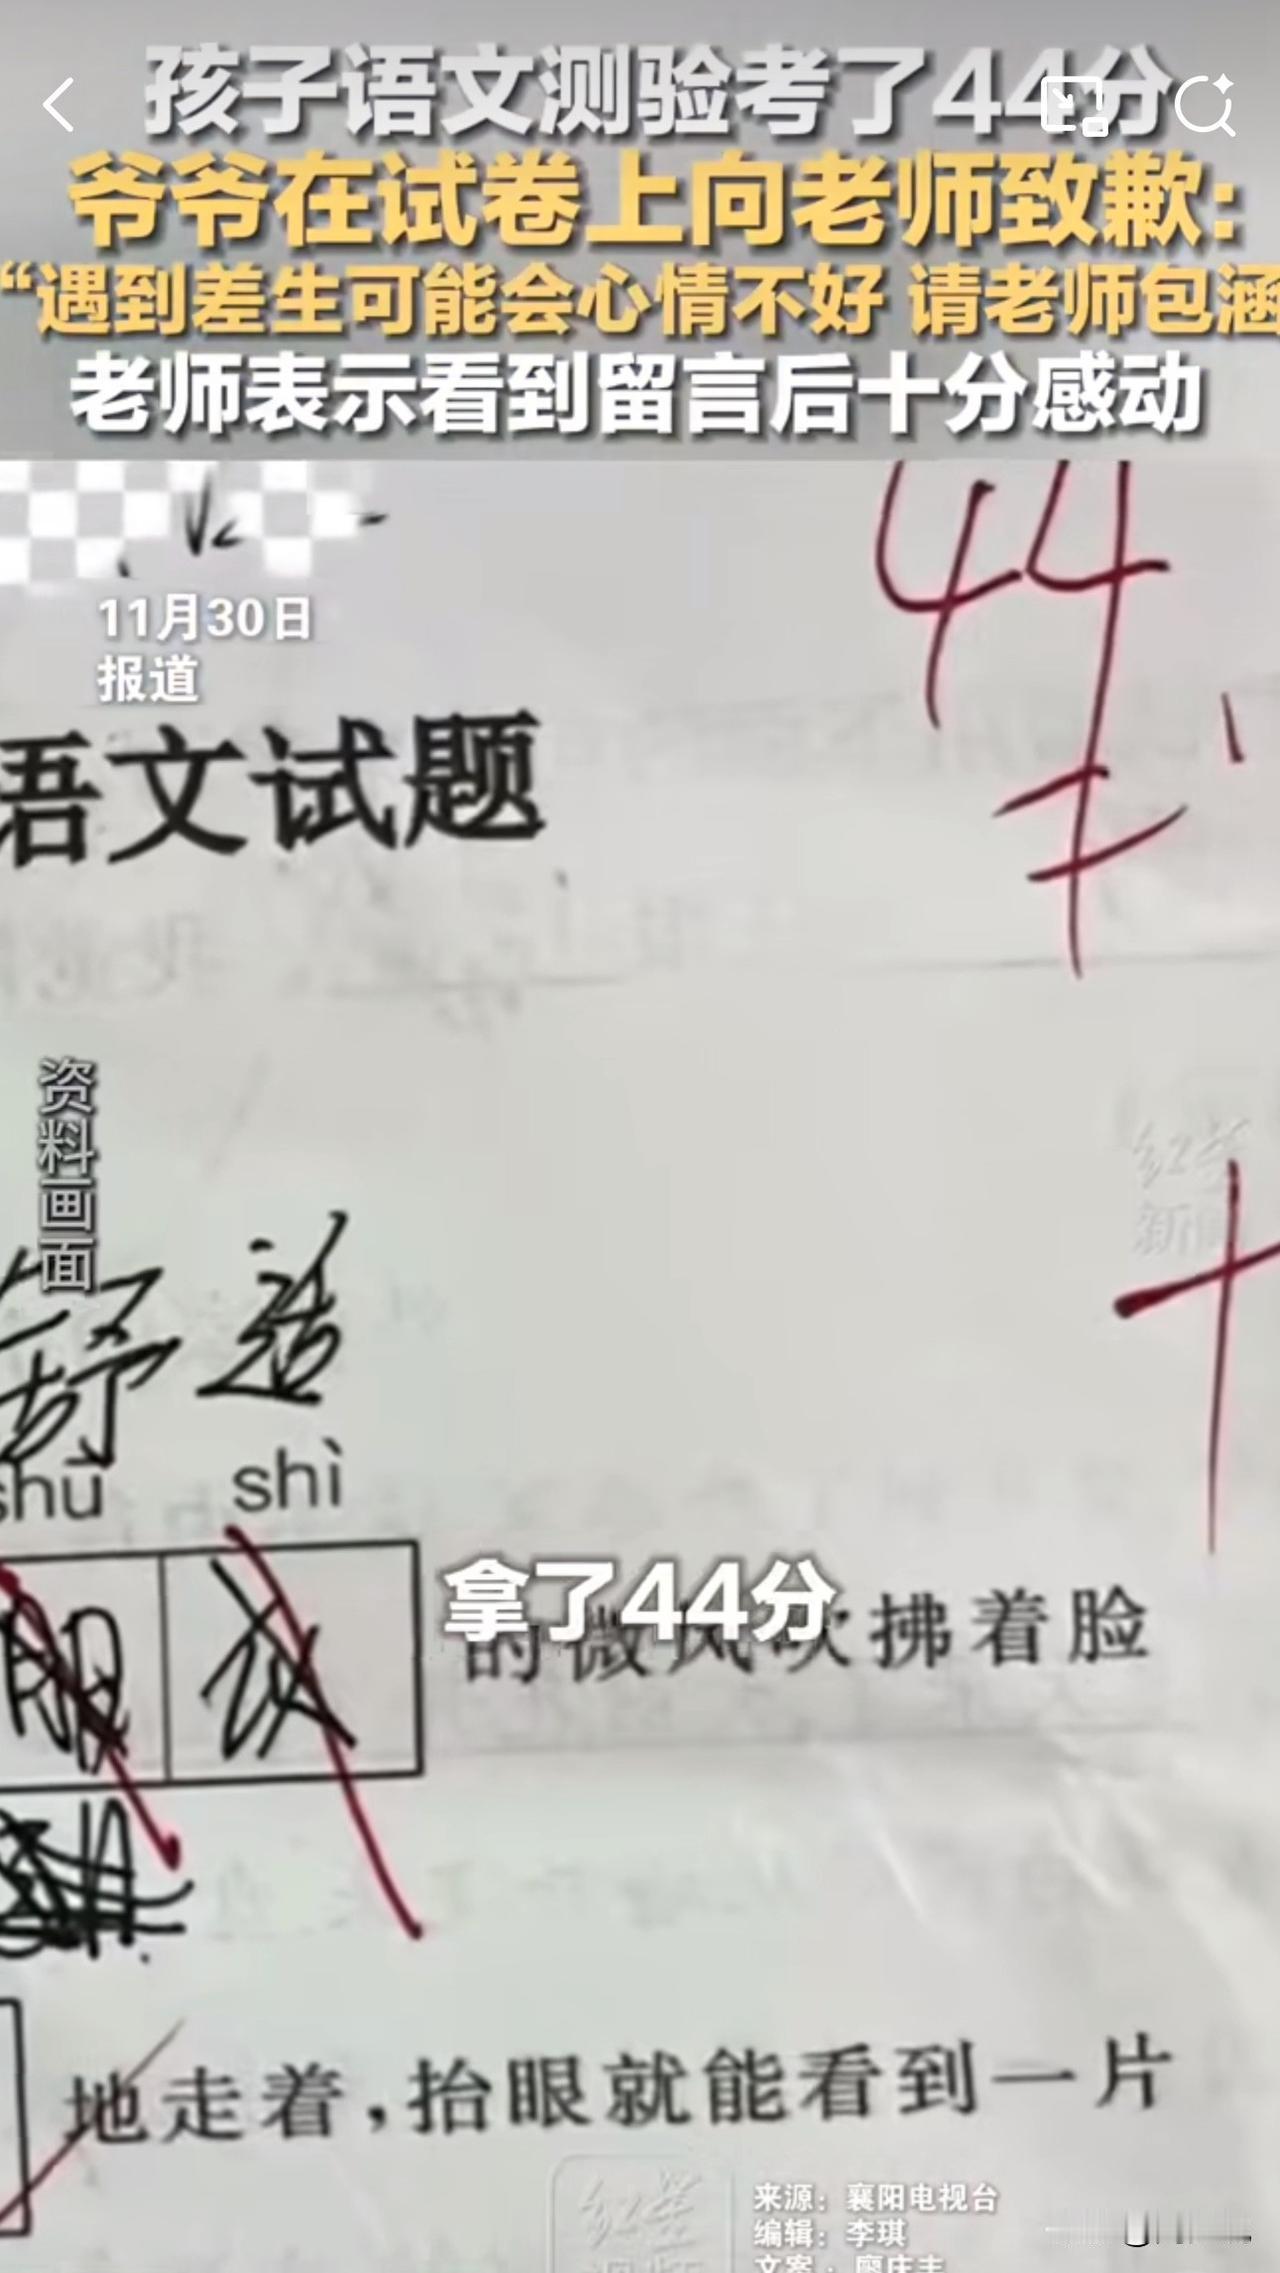 孩子语文测验考了44分
爷爷在试卷上向老师致歉:
“遇到差生可能会心情不好 请老师包涵
老师表示看到留言后十分感动
44
11月30日
报道
语文试题
资料画面
红星
新闻
舒适
shū shì
服
拿了44分
的微风吹拂着脸
地走着,抬眼就能看到一片
红星
来源：襄阳电视台
编辑：李琪
文案：廖庆丰